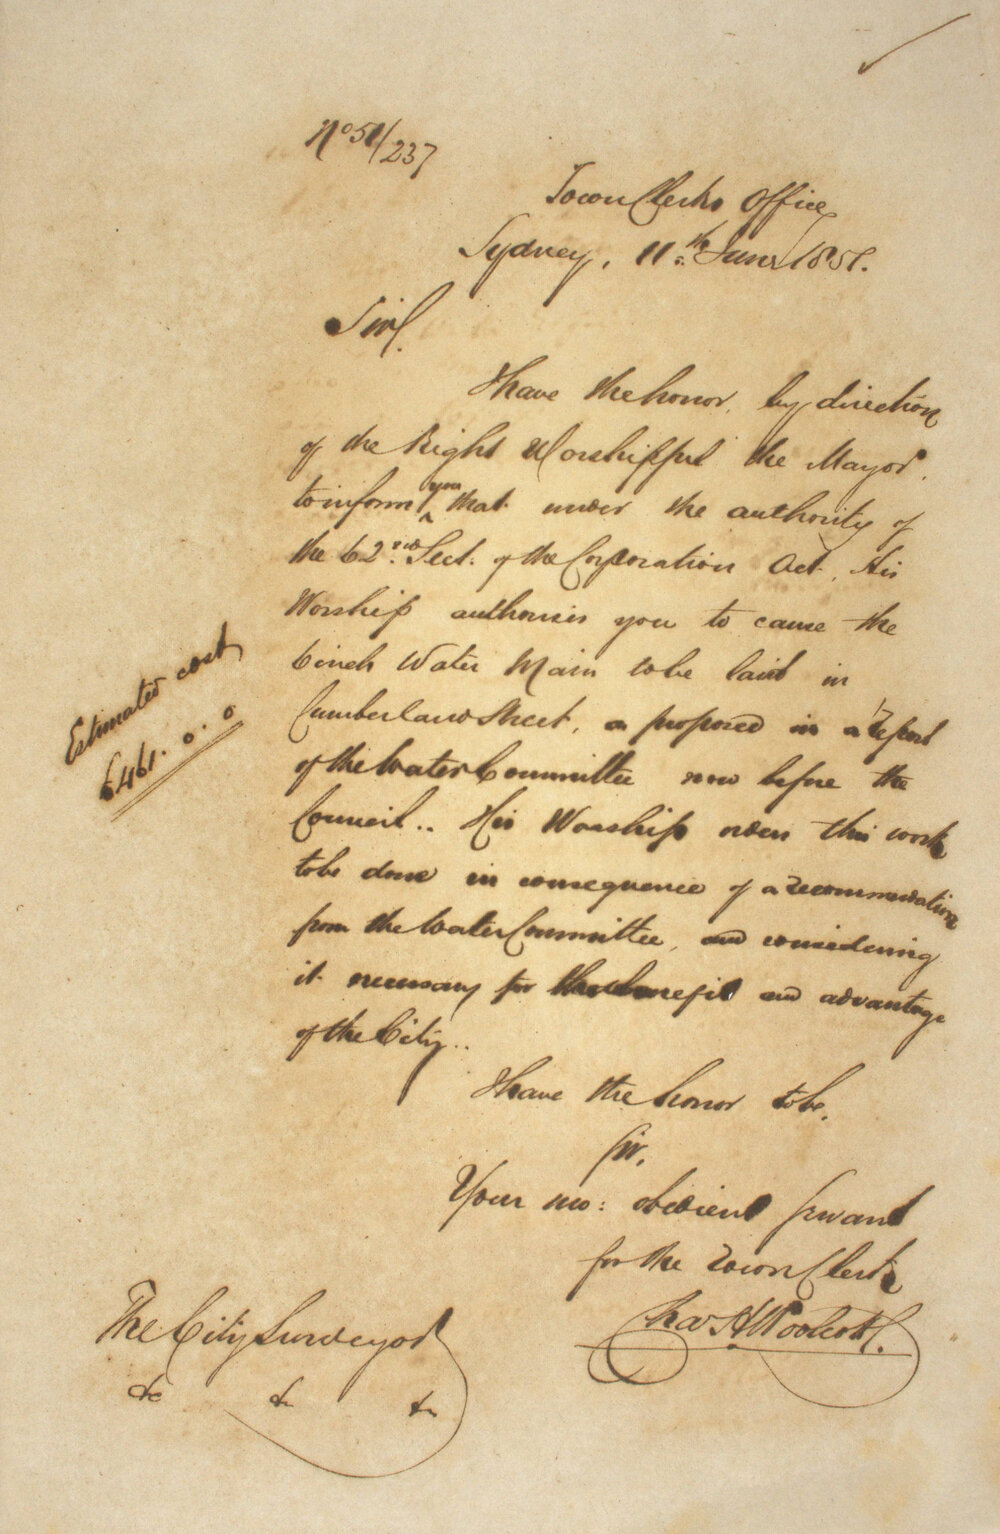 No 51/237
Town Clerks Office
Sydney, 11th June 1851.
Sir,
I have the honor, by direction
of the Right Worshipful the Mayor,
to inform you that under the authority of
the 62nd Sect. of the Corporation Act, His
Worship authorises you to cause the
6 inch Water Main to be laid in
Cumberland Street, as proposed in a Report
of the Water Committee now before the
Council.. His Worship orders this work
to be done in consequence of a recommendation
from the Water Committee, and considering
it necessary for the benefit and advantage
of the City..
I have the honor to be,
Sir,
Your mo: obedient Servant
for the Town Clerk
Chas H Woolcott.
Estimated cost
£461. 0. 0
The City Surveyor
&c &c &c